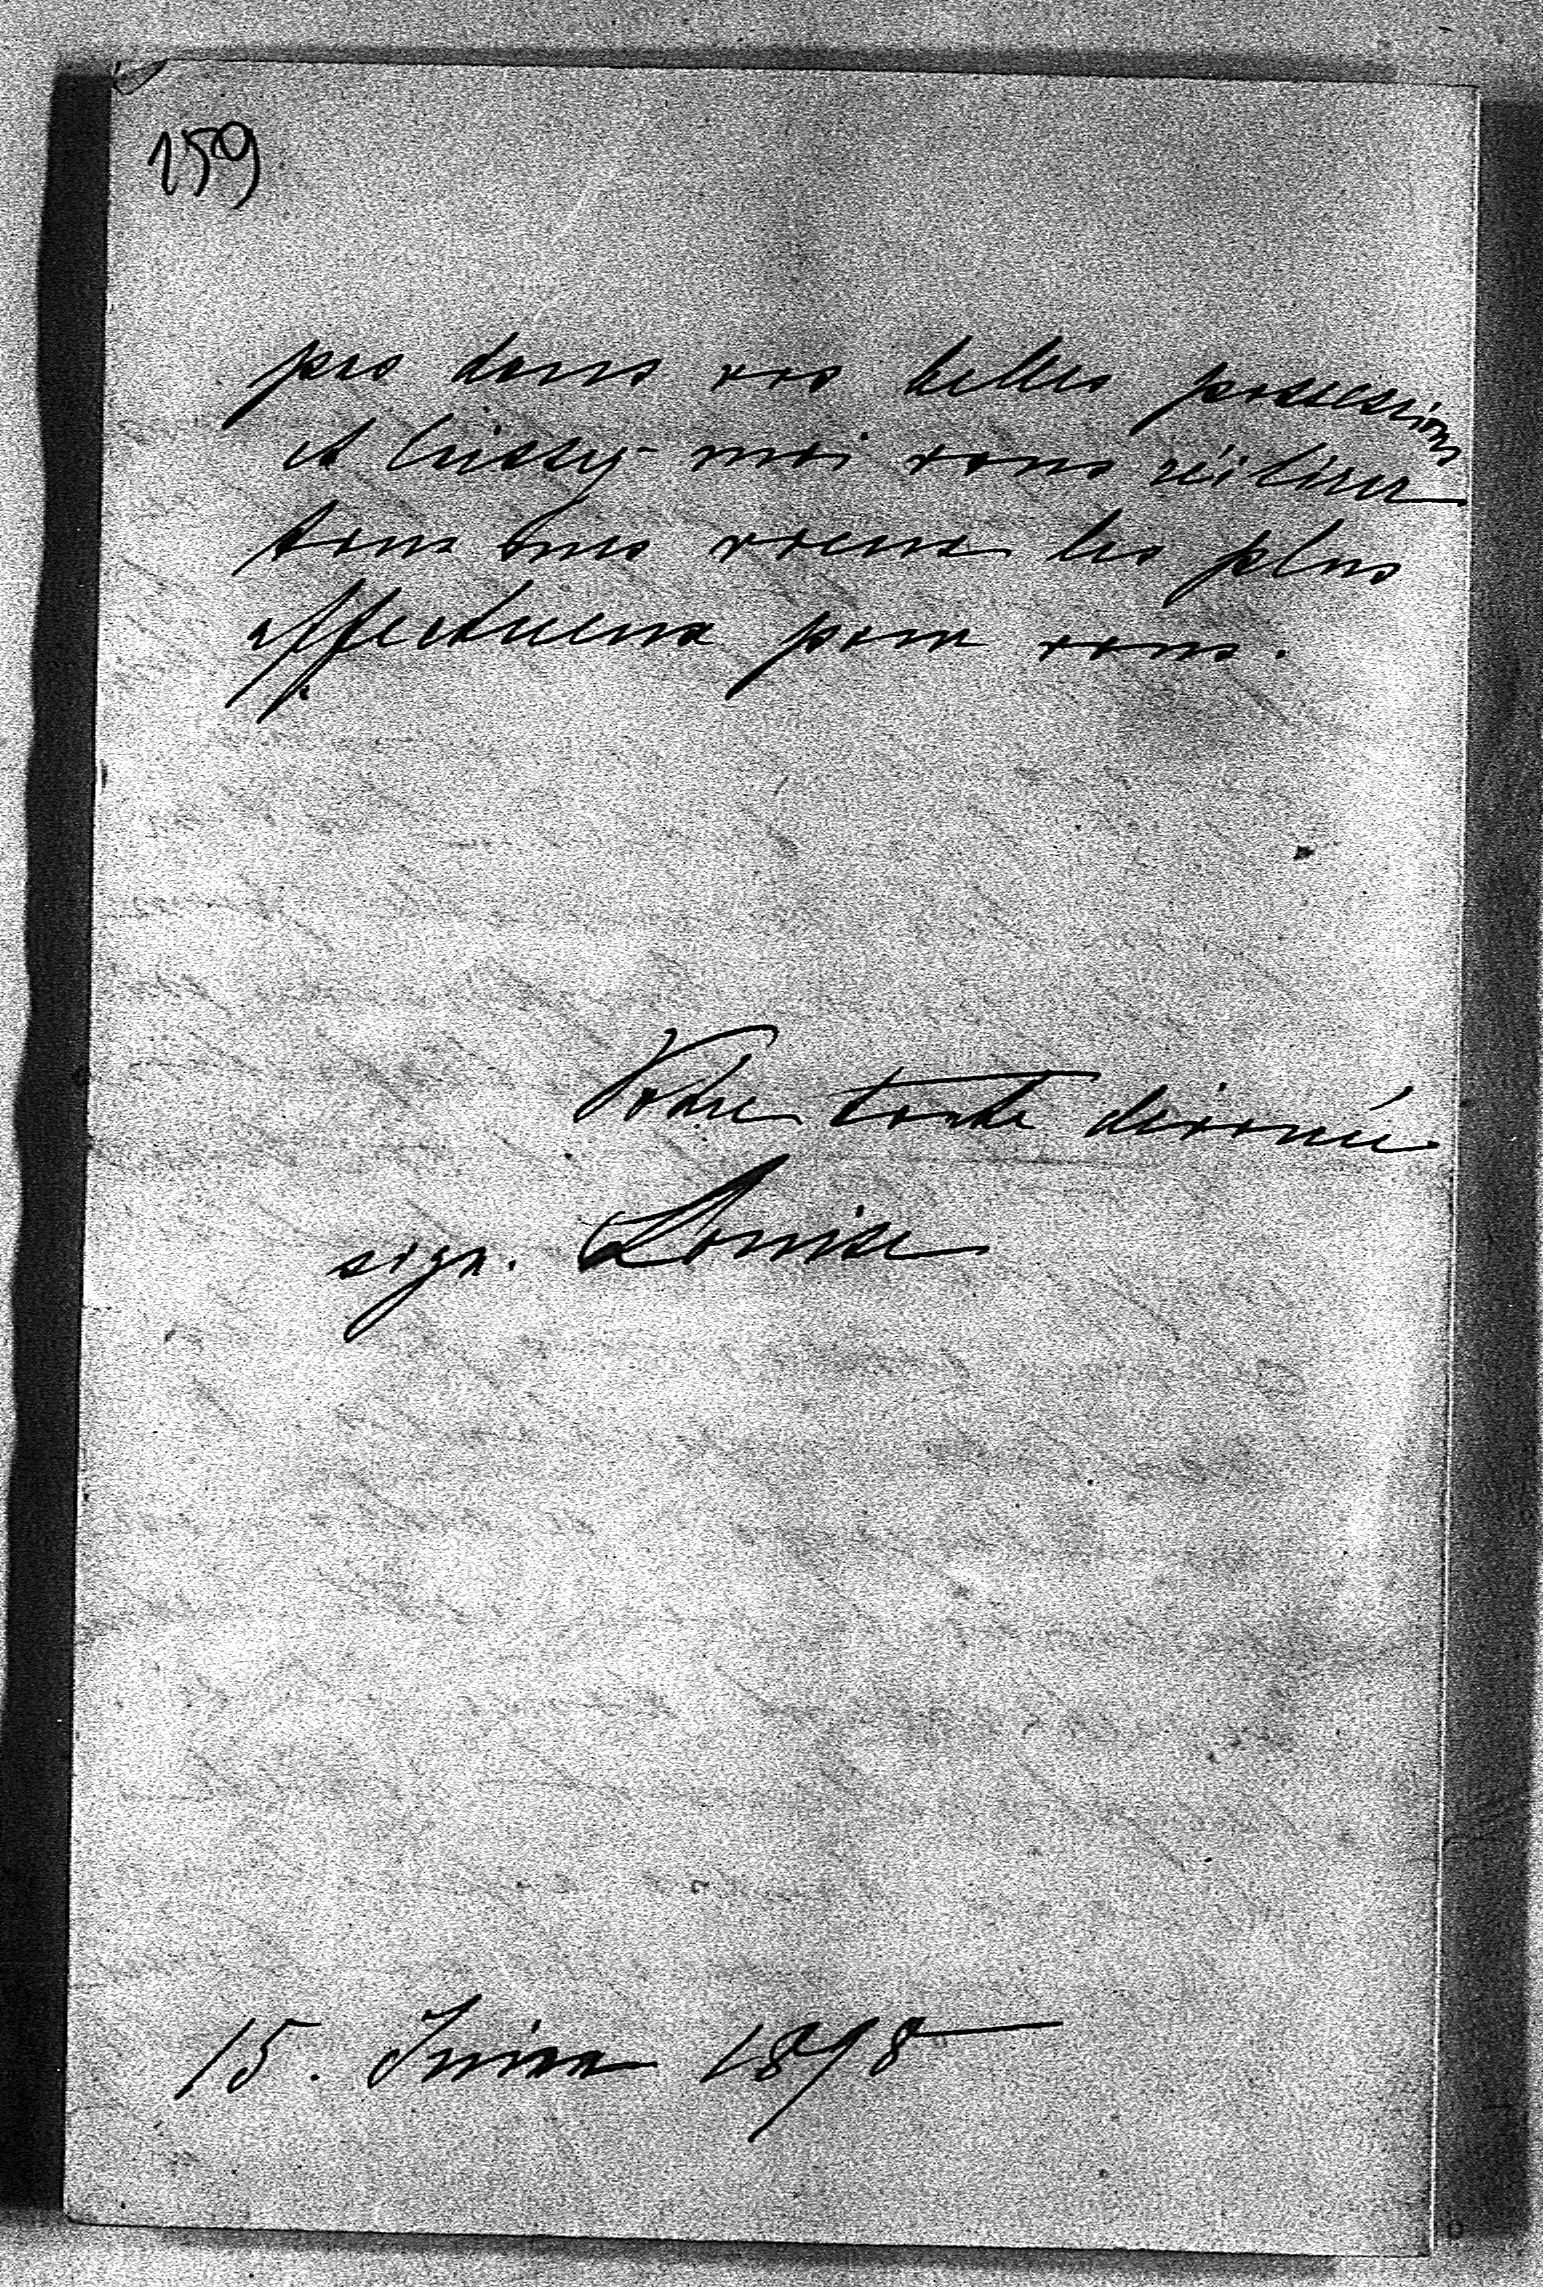 159
pas dans vos belles possessions
et laissez-moi vous réitérer
tous mes voeux les plus
affectueux pour vous.
Votre toute dévouée
sign. Louise
15. Juin 1898